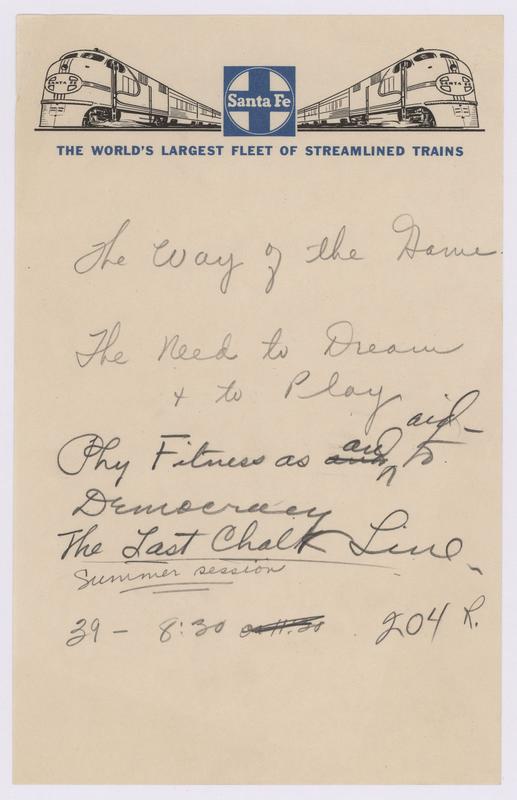 SANTA FE
Santa Fe
SANTA FE
THE WORLD'S LARGEST FLEET OF STREAMLINED TRAINS
The Way of the Game
The Need to Dream
+ to Play
Phy Fitness as and an aid to
Democracy
The Last Chalk Line
Summer session
39 - 8:30 or 11.30 204 R.